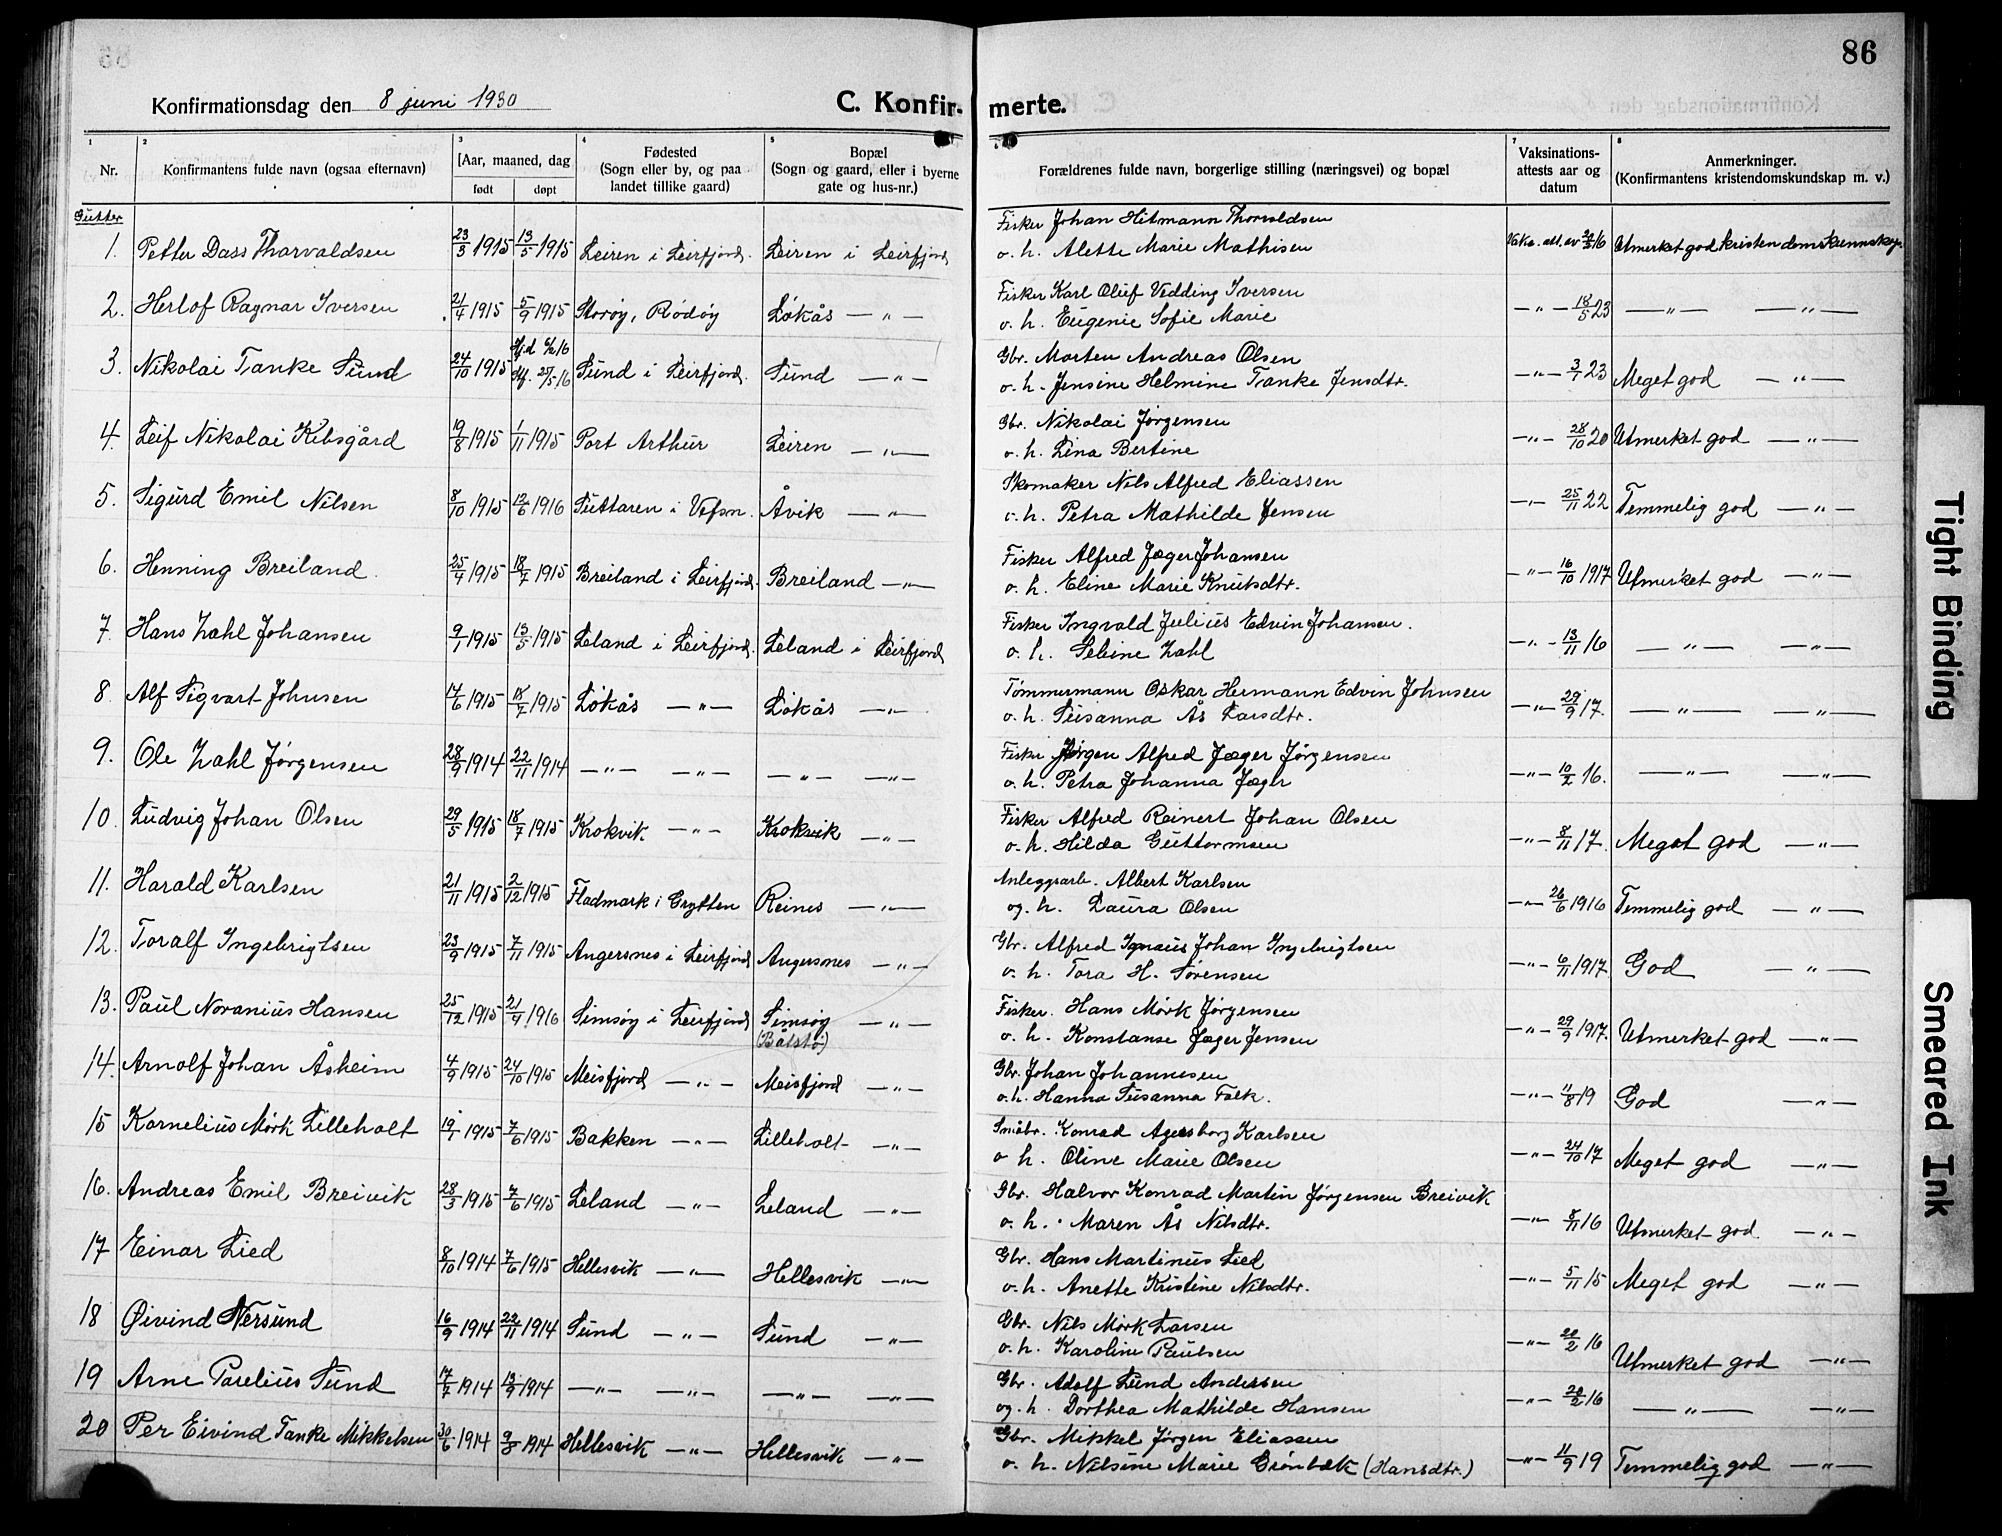 86
Konfirmationsdag den 8 juni 1930 C. Konfir- merte.
1 2 3 4 5 7 8
Nr. Konfirmantens fulde navn (ogsaa efternavn) Aar, maaned, dag født døpt Fødested (Sogn eller by, og paa landet tillike gaard) Bopæl (Sogn og gaard, eller i byerne gate og hus-nr.) Forældrenes fulde navn, borgerlige stilling (næringsvei) og bopæl Vaksinations-attests aar og datum Anmerkninger. (Konfirmantens kristendomskundskap m. v.)
Gutter
Fisker Johan Hitmann Thorvaldsen
1. Petter Dass Thorvaldsen 23/3 1915 13/5 1915 Leiren i Leirfjord. Leiren i Leirfjord o. h. Alette Marie Mathisen Vaks. att. av 16 Utmerket god kristendomskunnskap.
Fisker Karl Oluf Vedding Iversen
2. Herlof Ragnar Iversen 21/4 1915 5/9 1915 Storøy, Rødøy Løkås —"— o. h. Eugenie Sofie Marie —"— 18/5 23 —"— —"—
Gbr. Morten Andreas Olsen
3. Nikolai Tanke Sund 24/10 1915 27/5 16 Sund i Leirfjord. Sund —"— o. h. Jensine Helmine Tanke Jensdtr. —"— 3/1 23 Meget god —"—
Gbr. Nikolai Jørgensen
4. Leif Nikolai Kibsgård 19/8 1915 1/11 1915 Port Arthur Leiren —"— o. h. Lina Bertine —"— 28/10 20 Utmerket god —"—
Skomaker Nils Alfred Eliassen
5. Sigurd Emil Nilsen 8/10 1915 12/6 1916 Luttaren i Vefsn. Åvik —"— o. h. Petra Mathilde Jensen —"— 25/11 22 Temmelig god —"—
Fisker Alfred Jæger Johansen
6. Henning Breiland. 25/4 1915 18/7 1915 Breiland i Leirfjord. Breiland —"— o. h. Eline Marie Knutsdtr. —"— 16/10 1917 Utmerket god —"—
Fisker Ingvald Julius Edvin Johansen.
7. Hans Zahl Johansen 9/1 1915 13/5 1915 Leland i Leirfjord. Leland i Leirfjord o. h. Seline Zahl —"— 13/11 16 —"— —"—
Tømmermann Oskar Hermann Edvin Johnsen
8 Alf Sigvart Johnsen 14/6 1915 18/7 1915 Løkås —"— Løkås —"— o. h. Susanna Ås Larsdtr. —"— 29/9 17. —"— —"—
Fisker Jørgen Alfred Jæger Jørgensen
9. Ole Zahl Jørgensen 28/9 1914 22/11 1914 —"— —"— —"— —"— o. h. Petra Johanna Jæger —"— 10/2 16. —"— —"—
Fisker Alfred Reinert Johan Olsen
10. Ludvig Johan Olsen 29/5 1915 18/7 1915 Krokvik —"— Krokvik —"— o. h. Hilda Guttormsen —"— 8/11 17. Meget god —"—
Anleggsarb. Albert Karlsen
11. Harald Karlsen 21/11 1915 2/12 1915 Fladmark i Grytten Reines —"— og. h. Laura Olsen —"— 26/6 1916 Temmelig god —"—
Gbr. Alfred Ignaus Johan Ingebrigtsen
12. Toralf Ingebrigtsen 23/9 1915 7/11 1915 Angersnes i Leirfjord Angersnes —"— o. h. Tora H. Sørensen —"— 6/11 1917 God —"—
Fisker. Hans Mørk Jørgensen
13. Paul Noranius Hansen 25/12 1915 21/4 1916 Simsøy i Leirfjord Simsøy (Båtstø) —"— o. h. Konstanse Jæger Jensen —"— 29/9 1917. Utmerket god —"—
Gbr. Johan Johannesen
14. Arnolf Johan Åsheim 4/9 1915 24/10 1915 Meisfjord —"— Meisfjord —"— o. h. Hanna Susanna Falk. —"— 11/8 19 God —"—
Småbr. Konrad Agersborg Karlsen
15 Kornelius Mørk Lilleholt 19/1 1915 7/6 1915 Bakken —"— Lilleholt —"— o h. Oline Marie Olsen —"— 24/10 17 Meget god —"—
Gbr. Halvor Konrad Martin Jørgensen Breivik
16. Andreas Emil Breivik 28/3 1915 7/6 1915 Leland —"— Leland —"— o. h. Maren Ås Nilsdtr. —"— 8/11 16 Utmerket god. —"—
Gbr. Hans Martinus Lied
17 Einar Lied 8/10 1914 7/6 1915 Hellesvik —"— Hellesvik —"— o. h. Anette Kristine Nilsdtr. —"— 5/11 15 Meget god —"—
Gbr. Nils Mørk Larsen
18 Øivind Nersund 16/9 1914 22/11 1914 Sund —"— Sund —"— o. h. Karoline Paulsen —"— 20/2 16 Utmerket god —"—
Gbr. Adolf Lund Andersen
19 Arne Parelius Sund 17/7 1914 13/9 1914 —"— —"— —"— —"— og. h. Dorthea Mathilde Hansen —"— 20/2 16 —"— —"—
Gbr. Mikkel Jørgen Eliassen
20 Per Eivind Tanke Mikkelsen 30/6 1914 9/8 1914 Hellesvik —"— Hellesvik —"— o. h. Nilsine Marie Grønbæk (Hansdtr.) —"— 11/9 19 Temmelig god —"—
Tight Binding
Smeared Ink